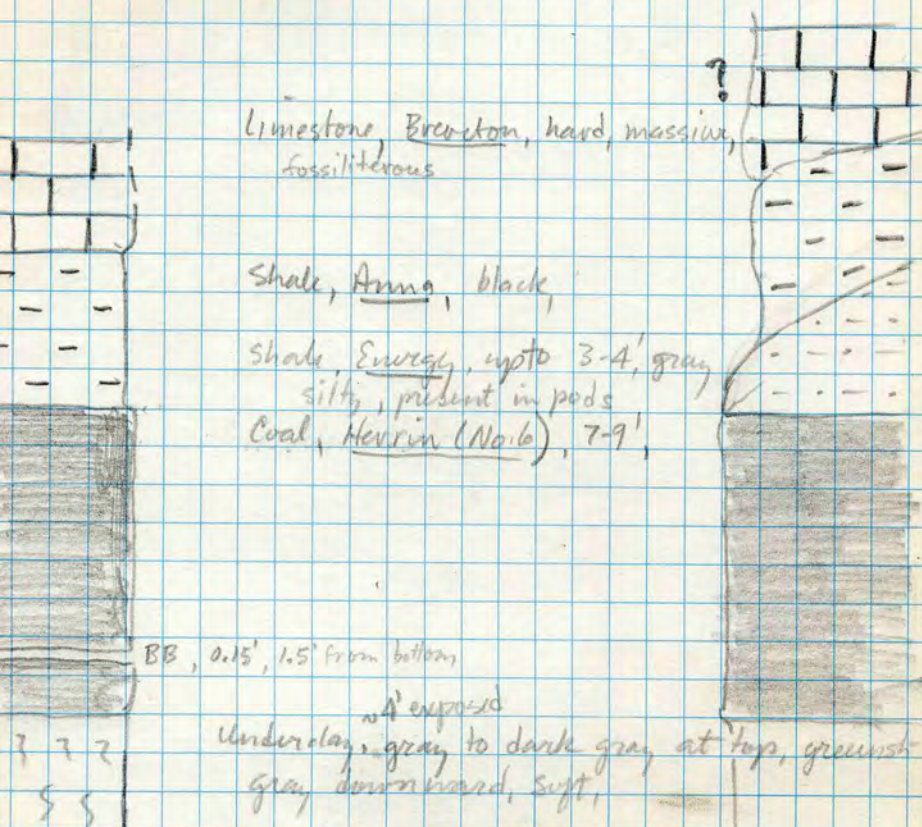 ?
Limestone, Brereton, hard, massive,
fossiliferous
Shale, Anna, black,
Shale, Energy, upto 3-4', gray
silty, present in pods
Coal, Herrin (No.6), 7-9',
BB, 0.15', 1.5' from bottom
~4' exposed
Underclay, gray to dark gray at top, greenish
gray downward, soft,